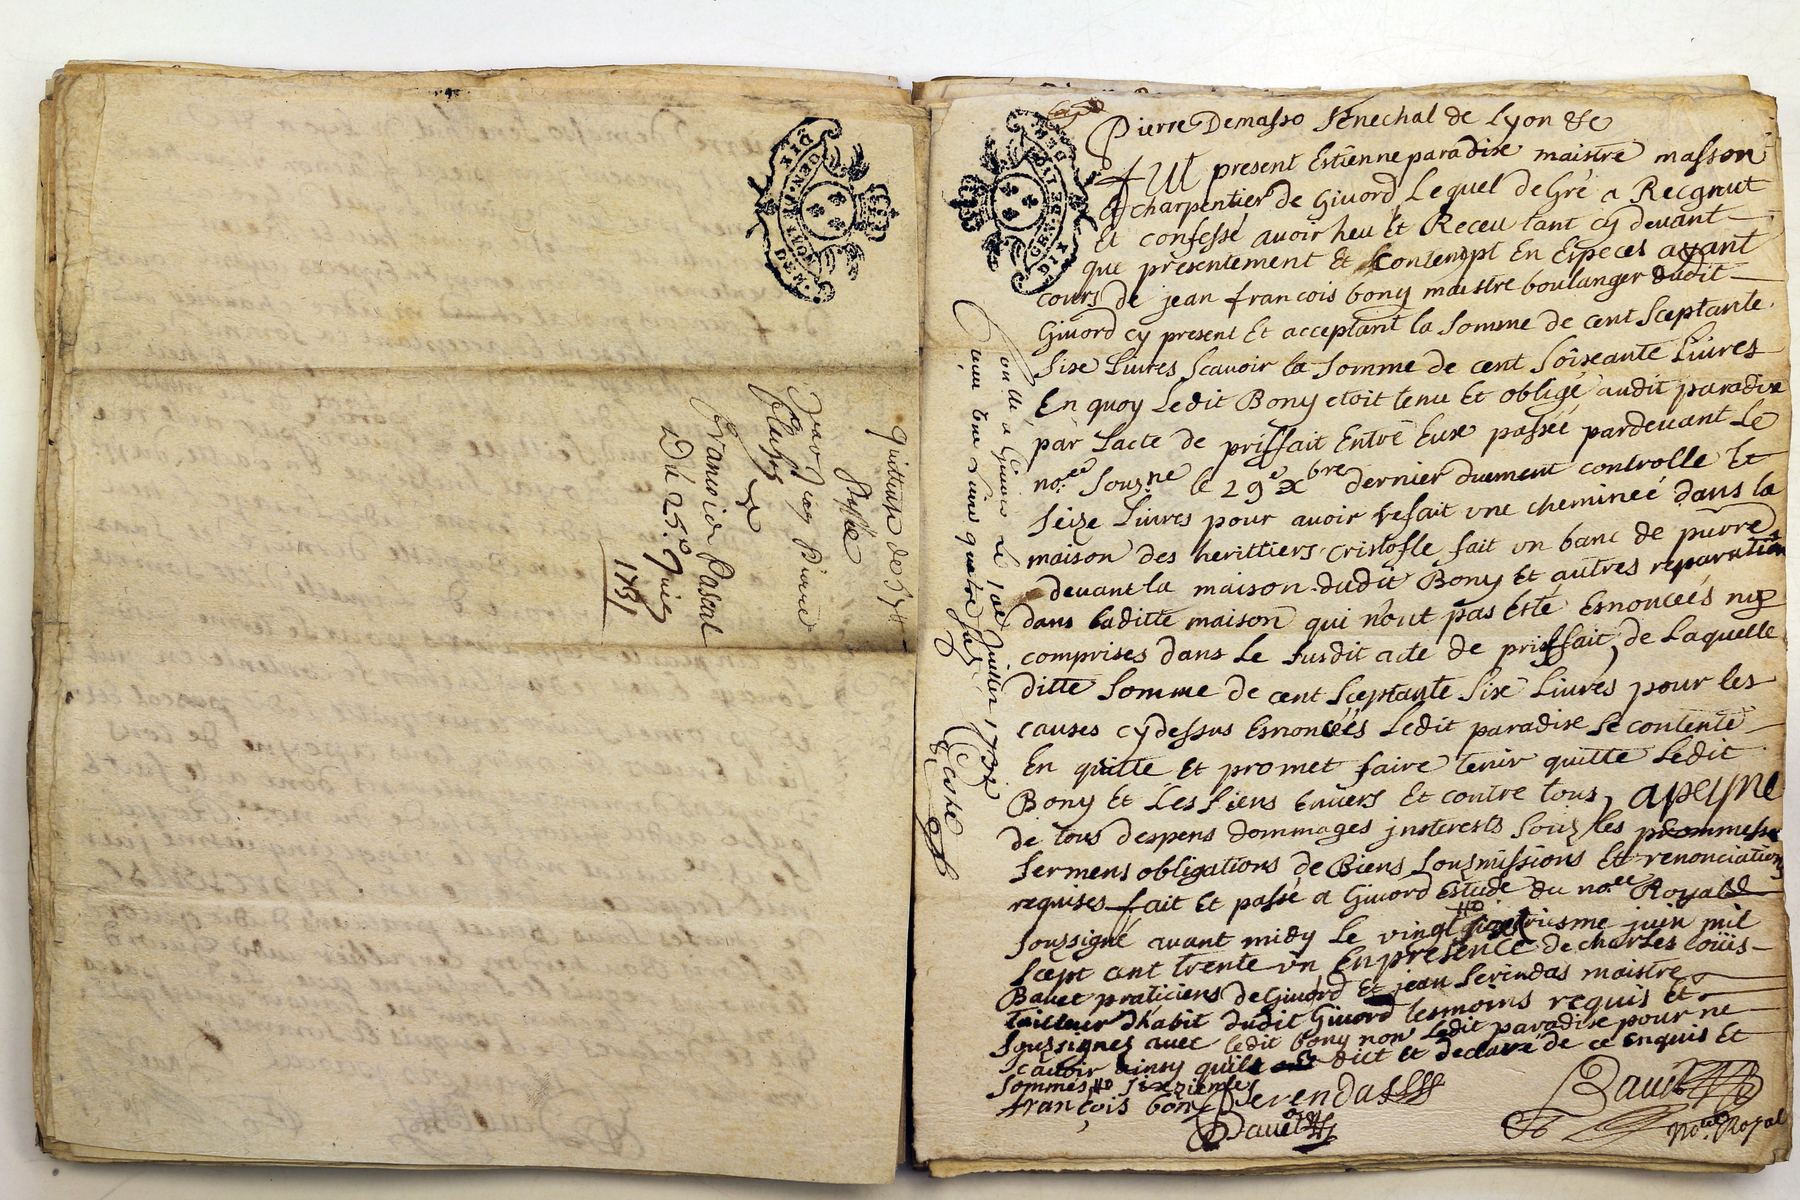 quittance de 57 ⸫
passée
par Jacq Pierre
fleury
a
francois Pascal
Du 25e Juin
1731
DIX DEN
GEN. DE LYON
DIX DEN
Pierre Demasso senechal de Lyon &c
Fut present Estienne paradise maistre masson
& charpentier de Givord, Lequel de Gré a Recgnut
Et confessé avoir heu Et Receu tant cy devant
que presentement Et contempt En Especes ayant
cours de jean francois bony maistre boulanger dudit
Givord cy present Et acceptant la somme de cent sceptante
sixe Livres scavoir la somme de cent soixante Livres
En quoy Ledit Bony etoit tenu Et obligé audit paradise
par Lacte de priffait Entre Euxe passée pardevant Le
no.re souz.ne le 29e xbre dernier duement controlle Et
seize Livres pour avoir refait une cheminée dans la
maison des herittiers cristofle fait un banc de pierre
devant la maison dudit Bony Et autres reparations
dans laditte maison qui n'ont pas Esté Esnoncées ny
comprises dans Le susdit acte de prisffait, de Laquelle
ditte somme de cent sceptante sixe Livres pour les
causes cy dessus Esnoncées Ledit paradise se contente
En quitte Et promet faire tenir quitte Ledit
Bony Et Les siens Envers Et contre tous, apeyne
de tous despens dommages jnsterests souz les promesse
sermens obligations de Biens souzmissions Et renonciations
requises fait Et passé a Givord Estude du no.re Royal
souzsigné avant midy Le vingt juin mil
scept cent trente un En presence de charles Loüis
Bavet praticiens de Givord Et jean serendas maistre
tailleur dhabit dudit Givord tesmoins requis Et
soussignes avec ledit bony non Ledit paradise pour ne
scavoir ainsy quil a dict Et declaré de ce Enquis Et
sommés
françois bony Serendas Bavet
Bavet No.re Royal
Conllé a Givors Le Juillet 1731
Reçu une livre quatre sols